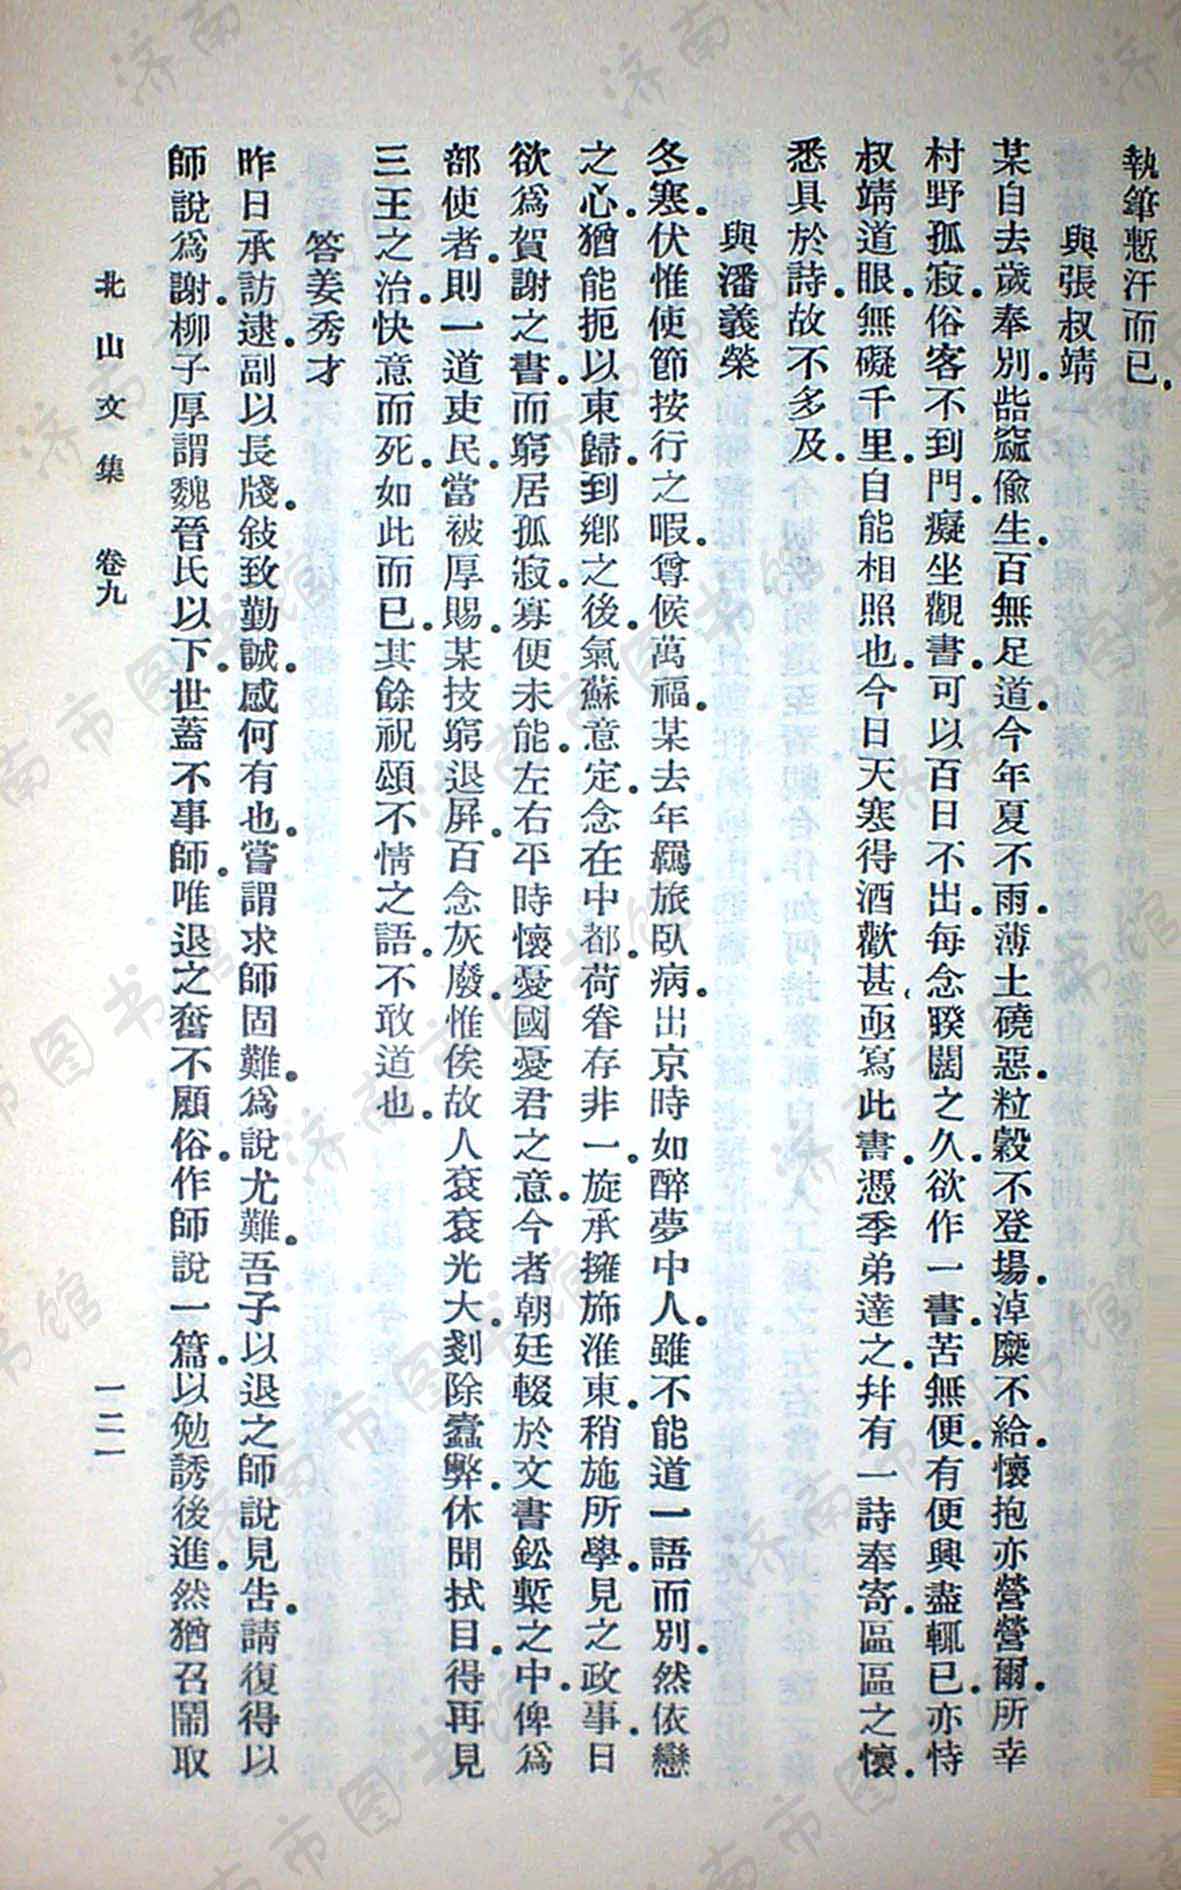 執筆慙汗而已。
與張叔靖
某自去歲奉別。呰窳偸生。百無足道。今年夏不雨。薄土磽惡。粒穀不登場。淖糜不給。懷抱亦營營爾。所幸
村野孤寂。俗客不到門。癡坐觀書。可以百日不出。每念睽闊之久。欲作一書。苦無便。有便興盡輒已。亦恃
叔靖道眼。無礙千里。自能相照也。今日天寒得酒歡甚。亟寫此書。憑季弟達之。幷有一詩奉寄。區區之懷。
悉具於詩。故不多及。
與潘義榮
冬寒。伏惟使節按行之暇。尊候萬福。某去年羈旅臥病。出京時如醉夢中人。雖不能道一語而別。然依戀
之心。猶能扼以東歸。到鄉之後。氣蘇意定。念在中都。荷眷存非一。旋承擁斾淮東。稍施所學。見之政事。日
欲爲賀謝之書。而窮居孤寂。寡便未能。左右平時懷憂國憂君之意。今者朝廷輟於文書鈆槧之中。俾爲
部使者。則一道吏民。當被厚賜。某技窮退屛。百念灰廢。惟俟故人袞袞光大。剗除蠹弊。休聞拭目。得再見
三王之治。快意而死。如此而已。其餘祝頌不情之語。不敢道也。
答姜秀才
昨日承訪逮。副以長牋。敍致勤誠。感何有也。嘗謂求師固難。爲說尤難。吾子以退之師說見告。請復得以
師說爲謝。柳子厚謂魏晉氏以下。世蓋不事師。唯退之奮不顧俗。作師說一篇。以勉誘後進。然猶召鬧取
北山文集 卷九
一二一
济南市图书馆